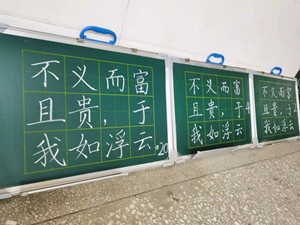 不义而富
且贵，于
我如浮云。20
不义而富
且贵，于4
我如浮云
不义而富
且贵，于
我如浮云